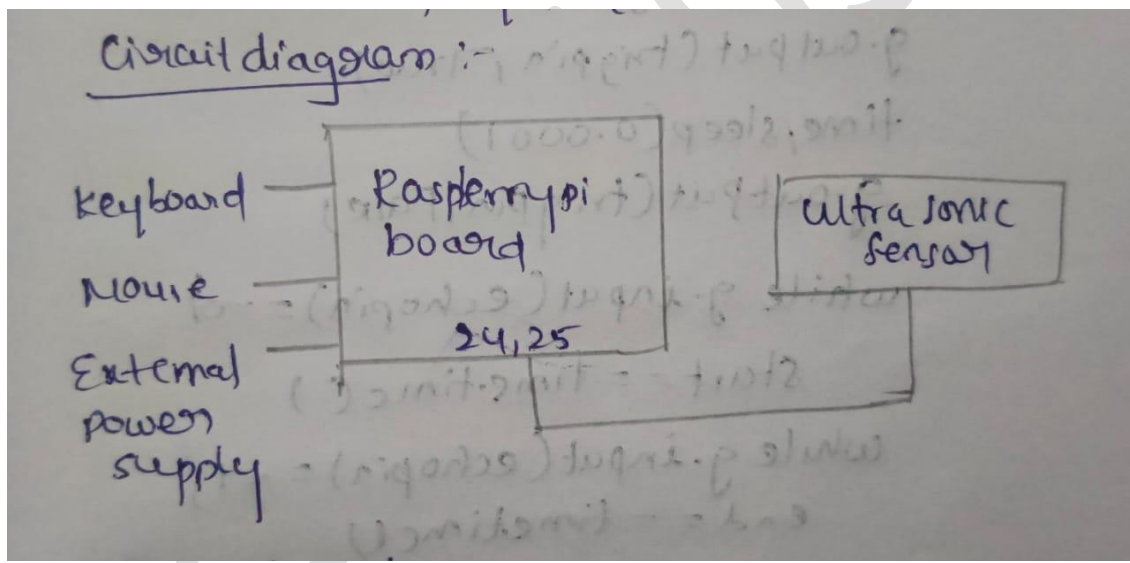 Circuit diagram :-
Keyboard
Mouse
External
power
supply
Raspberrypi
board
24,25
Ultra sonic
Sensor